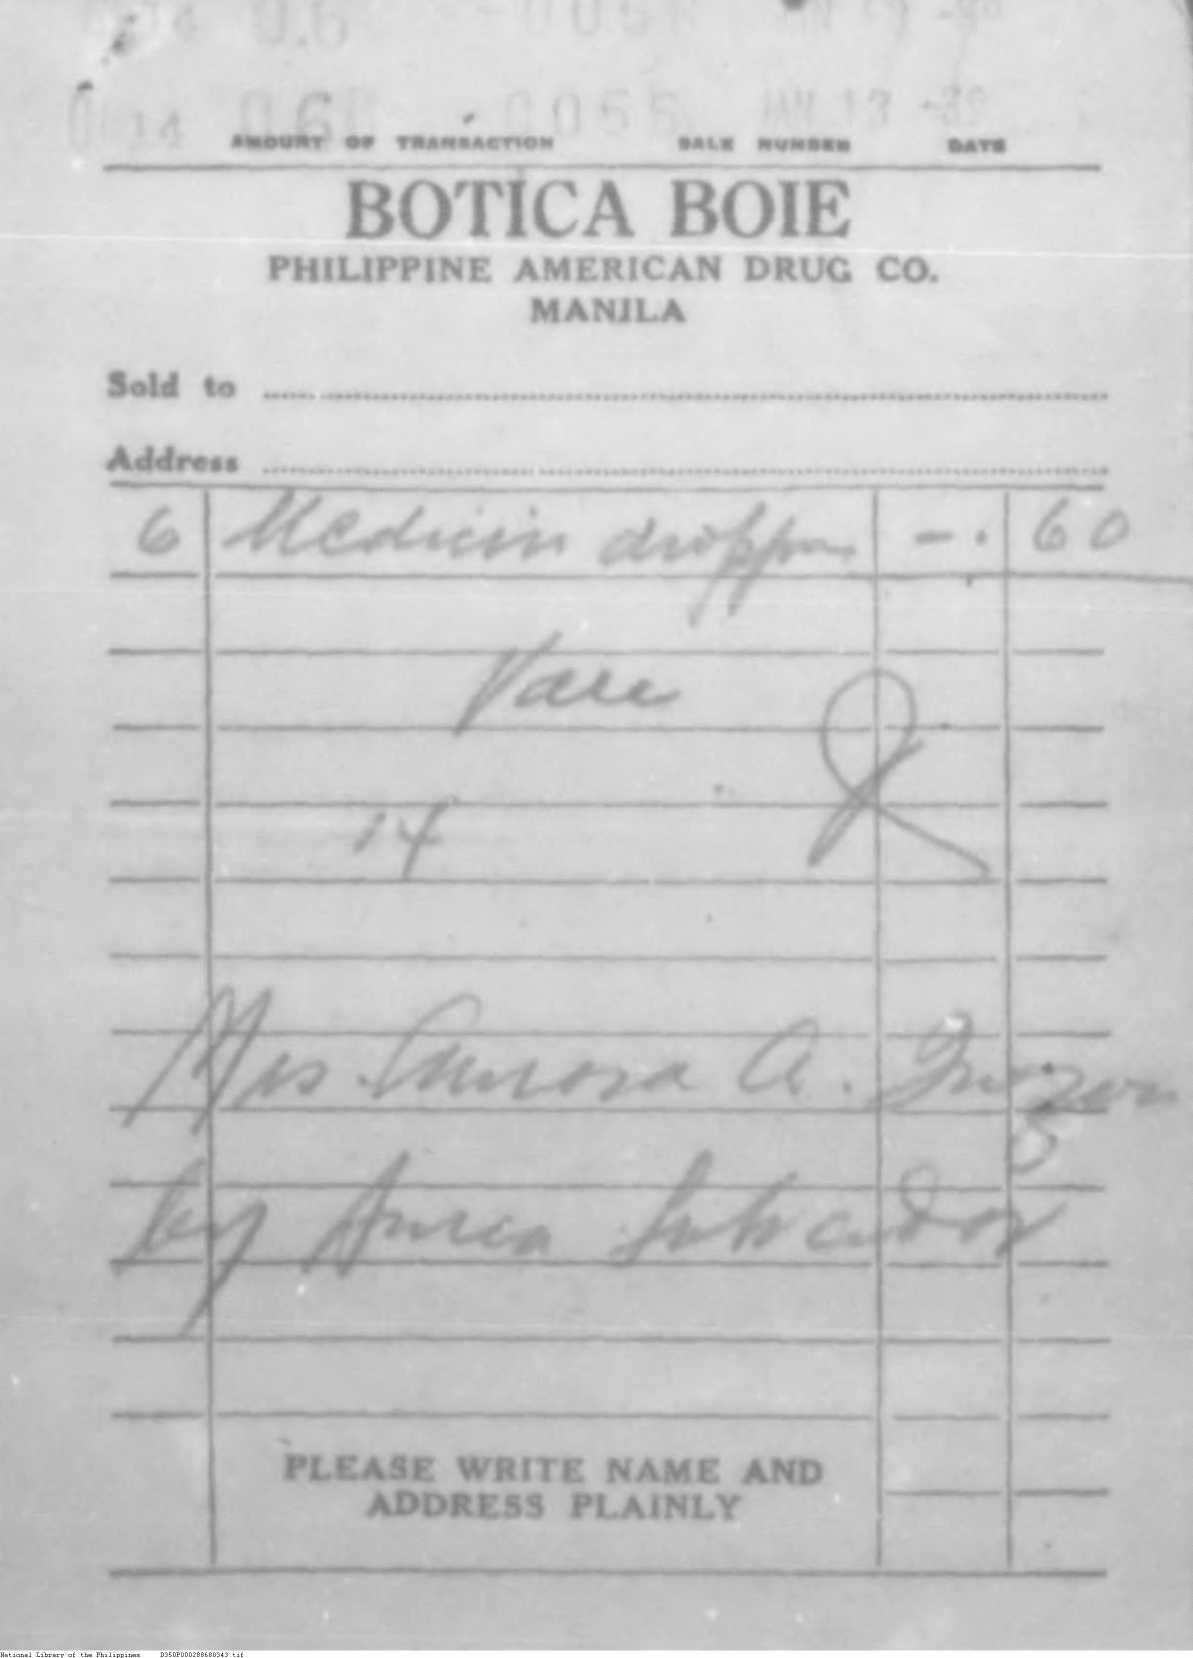 0014 0.60 -0056 JAN 13 -39
AMOUNT OF TRANSACTION SALE NUMBER DATE
BOTICA BOIE
PHILIPPINE AMERICAN DRUG CO.
MANILA
Sold to
Address
6 Medicin droppers -. 60
14
Mrs. Aurora A. Quezon
by Aurea Salvador
PLEASE WRITE NAME AND
ADDRESS PLAINLY
National Library of the Philippines D350P000288680343.tif